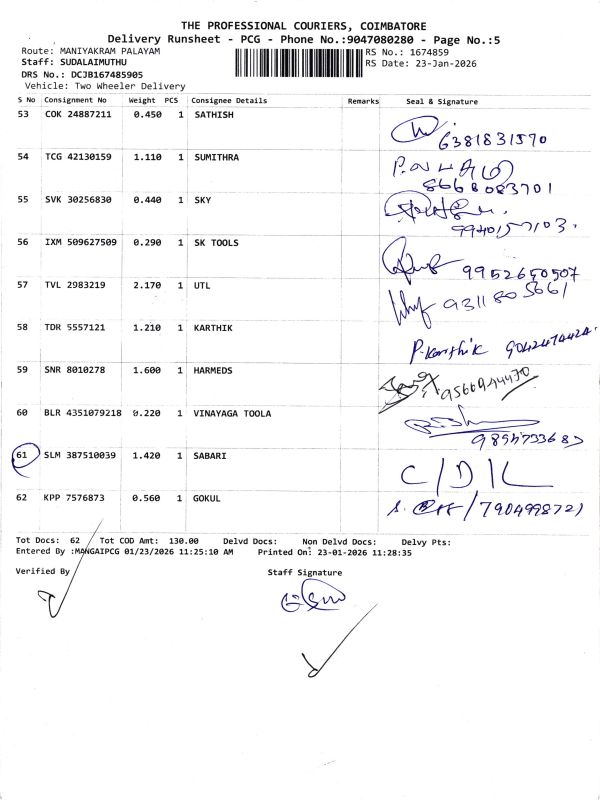 THE PROFESSIONAL COURIERS, COIMBATORE
Delivery Runsheet - PCG - Phone No.:9047080280 - Page No.:5
Route: MANIYAKRAM PALAYAM RS No.: 1674859
Staff: SUDALAIMUTHU RS Date: 23-Jan-2026
DRS No.: DCJB167485905
Vehicle: Two Wheeler Delivery
S No Consignment No Weight PCS Consignee Details Remarks Seal & Signature
53 COK 24887211 0.450 1 SATHISH
6381831570
54 TCG 42130159 1.110 1 SUMITHRA
8668083701
55 SVK 30256830 0.440 1 SKY
9940157103.
56 IXM 509627509 0.290 1 SK TOOLS
9952650507
57 TVL 2983219 2.170 1 UTL
9311805661
58 TDR 5557121 1.210 1 KARTHIK
P. Karthik
59 SNR 8010278 1.600 1 HARMEDS
9566944470
60 BLR 4351079218 0.220 1 VINAYAGA TOOLA
61 SLM 387510039 1.420 1 SABARI
C/D/L
62 KPP 7576873 0.560 1 GOKUL
/7904998721
Tot Docs: 62 Tot COD Amt: 130.00 Delvd Docs: Non Delvd Docs: Delvy Pts:
Entered By :MANGAIPCG 01/23/2026 11:25:10 AM Printed On: 23-01-2026 11:28:35
Verified By Staff Signature